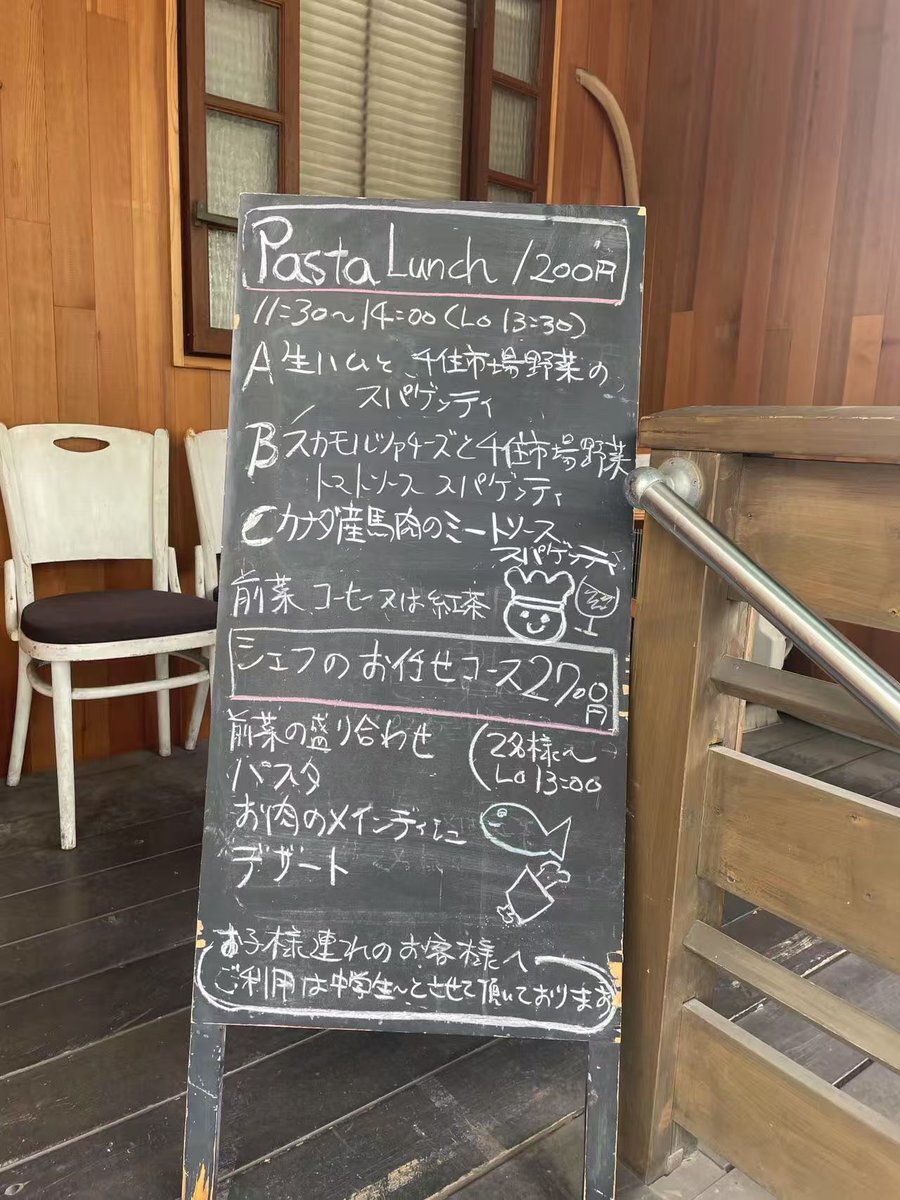 Pasta Lunch 1200円
11:30～14:00 (LO 13:30)
A 生ハムと千住市場野菜の
スパゲンティ
B スカモルツァチーズと千住市場野菜
トマトソース スパゲンティ
C カナダ産馬肉のミートソース
スパゲンティ
前菜 コーヒー又は紅茶
シェフのお任せコース2700円
前菜の盛り合わせ
(2名様～
パスタ
LO 13:00
お肉のメインディシュ
デザート
お子様連れのお客様へ
ご利用は中学生～とさせて頂いております